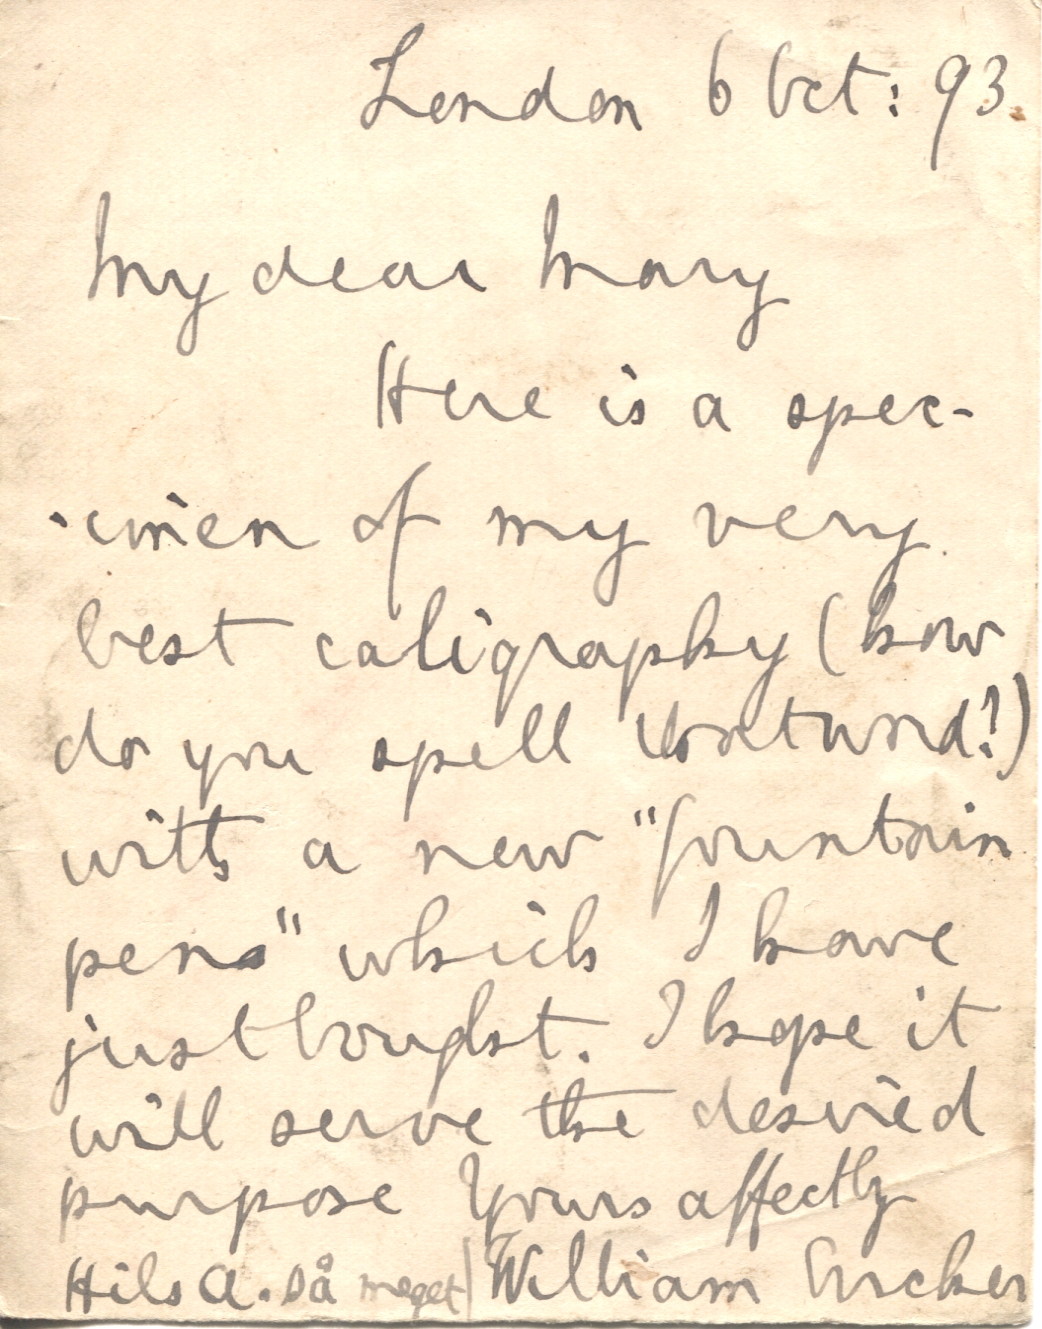 London 6 Oct: 93.
My dear Mary
Here is a spec-
-imen of my very
best caligraphy (how
do you spell that word?)
with a new "fountain
pens" which I have
just bought. I hope it
will serve the desired
purpose Yours affectly
Hils A. så meget) William